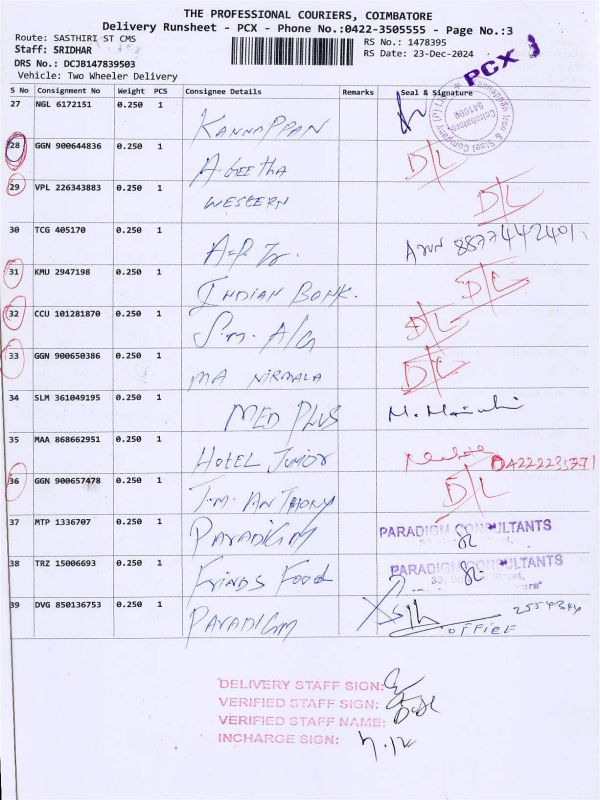 THE PROFESSIONAL COURIERS, COIMBATORE
Delivery Runsheet - PCX - Phone No.:0422-3505555 - Page No.:3
Route: SASTHIRI ST CMS RS No.: 1478395
Staff: SRIDHAR RS Date: 23-Dec-2024
DRS No.: DCJB147839503
Vehicle: Two Wheeler Delivery
PCX
S No Consignment No Weight PCS Consignee Details Remarks Seal & Signature
27 NGL 6172151 0.250 1 KANNAPPAN
28 GGN 900644836 0.250 1 A. GEETHA D/L
29 VPL 226343883 0.250 1 WESTERN D/L
30 TCG 405170 0.250 1 8877442401
31 KMU 2947198 0.250 1 INDIAN BONK. D/L
32 CCU 101281870 0.250 1 S.M. A/G D/L
33 GGN 900650386 0.250 1 MA NIRMALA D/L
34 SLM 361049195 0.250 1 MED PLUS
35 MAA 868662951 0.250 1 HOTEL JUNIOR
36 GGN 900657478 0.250 1 T.M. ANTHONY D/L
37 MTP 1336707 0.250 1 PARADIGM PARADIGM CONSULTANTS
38 TRZ 15006693 0.250 1 FRINDS FOOD PARADIGM CONSULTANTS
39 DVG 850136753 0.250 1 PARADIGM OFFICE
DELIVERY STAFF SIGN:
VERIFIED STAFF SIGN:
VERIFIED STAFF NAME:
INCHARGE SIGN: